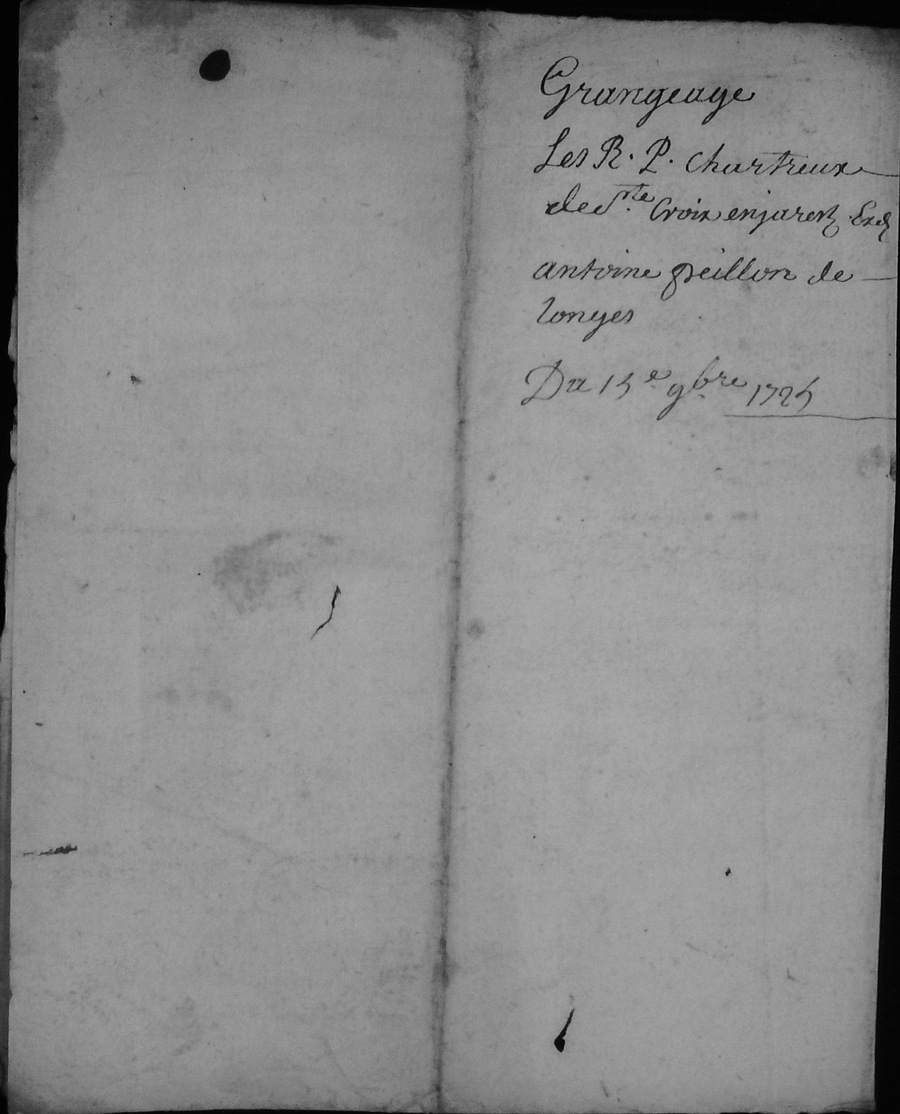 Grangeage
Les R. P. chartreux
de Ste Croix en jarez Et
antoine peillon de
Longes
Du 15e 9bre 1725